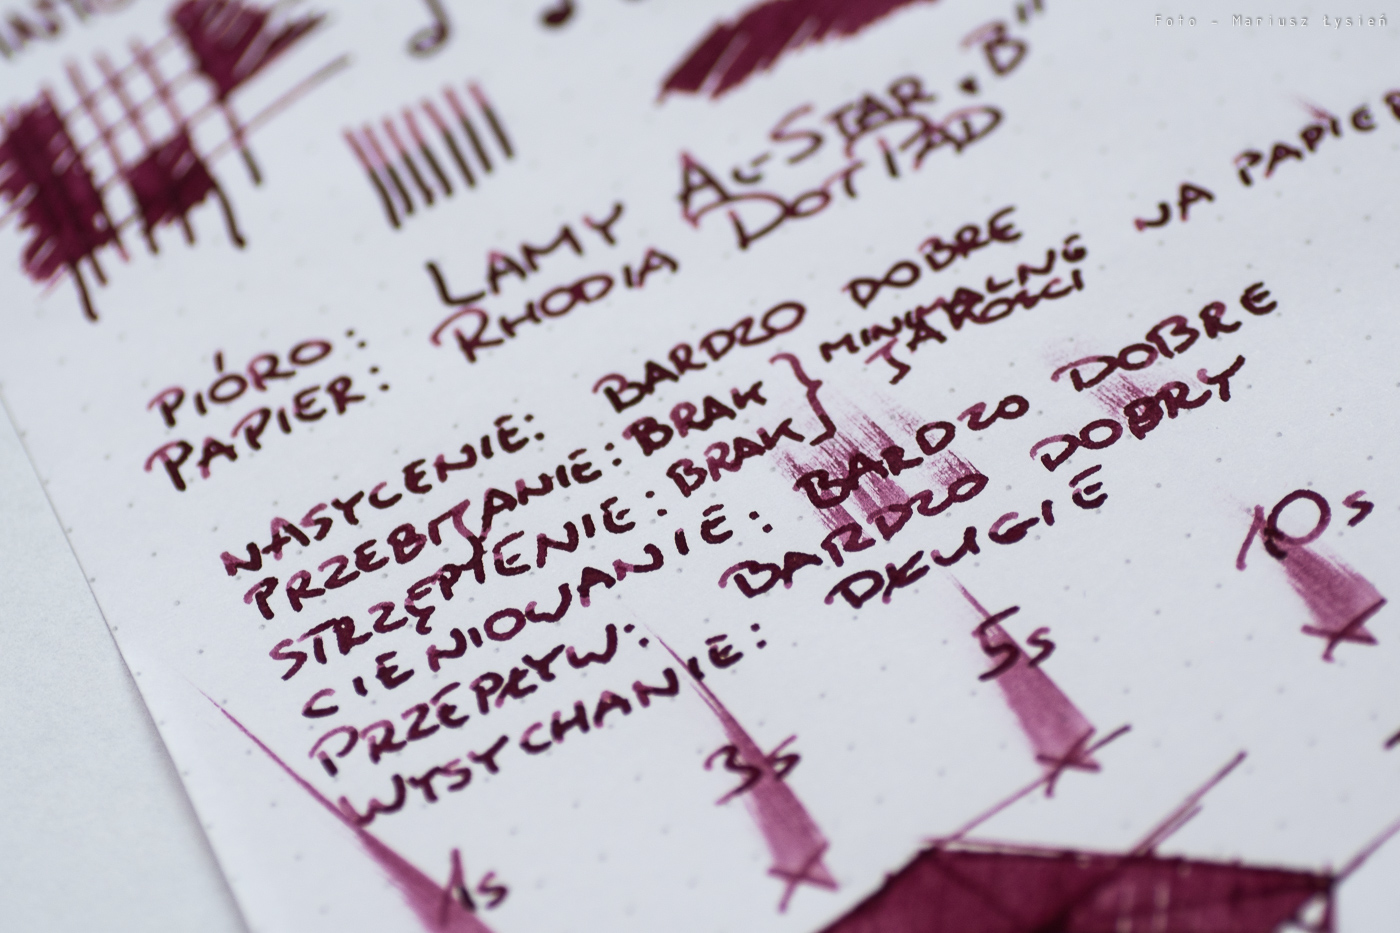 Foto - Mariusz Łysień
PIÓRO: LAMY AL-STAR „B”
PAPIER: RHODIA DOTPAD
NASYCENIE: BARDZO DOBRE
PRZEBIJANIE: BRAK } MINIMALNE NA PAPIER
STRZĘPIENIE: BRAK JAKOŚCI
CIENIOWANIE: BARDZO DOBRE
PRZEPŁYW: BARDZO DOBRY
WYSYCHANIE: DŁUGIE
1s 3s 5s 10s